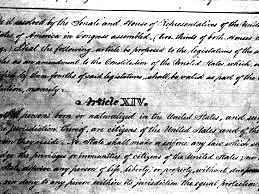 it resolved by the Senate and House of Representatives of the United
States of America in Congress assembled, (two thirds of both Houses
Shall the following article be proposed to the legislatures of the
as an amendment to the Constitution of the United States which,
by three-fourths of said legislatures, shall be valid as part of the
namely:
Article XIV.
persons born or naturalized in the United States, and
the jurisdiction thereof, are citizens of the United States and of the
they reside. No State shall make or enforce any law which
the privileges or immunities of citizens of the United States; nor
State deprive any person of life, liberty, or property, without due
nor deny to any person within its jurisdiction the equal protection